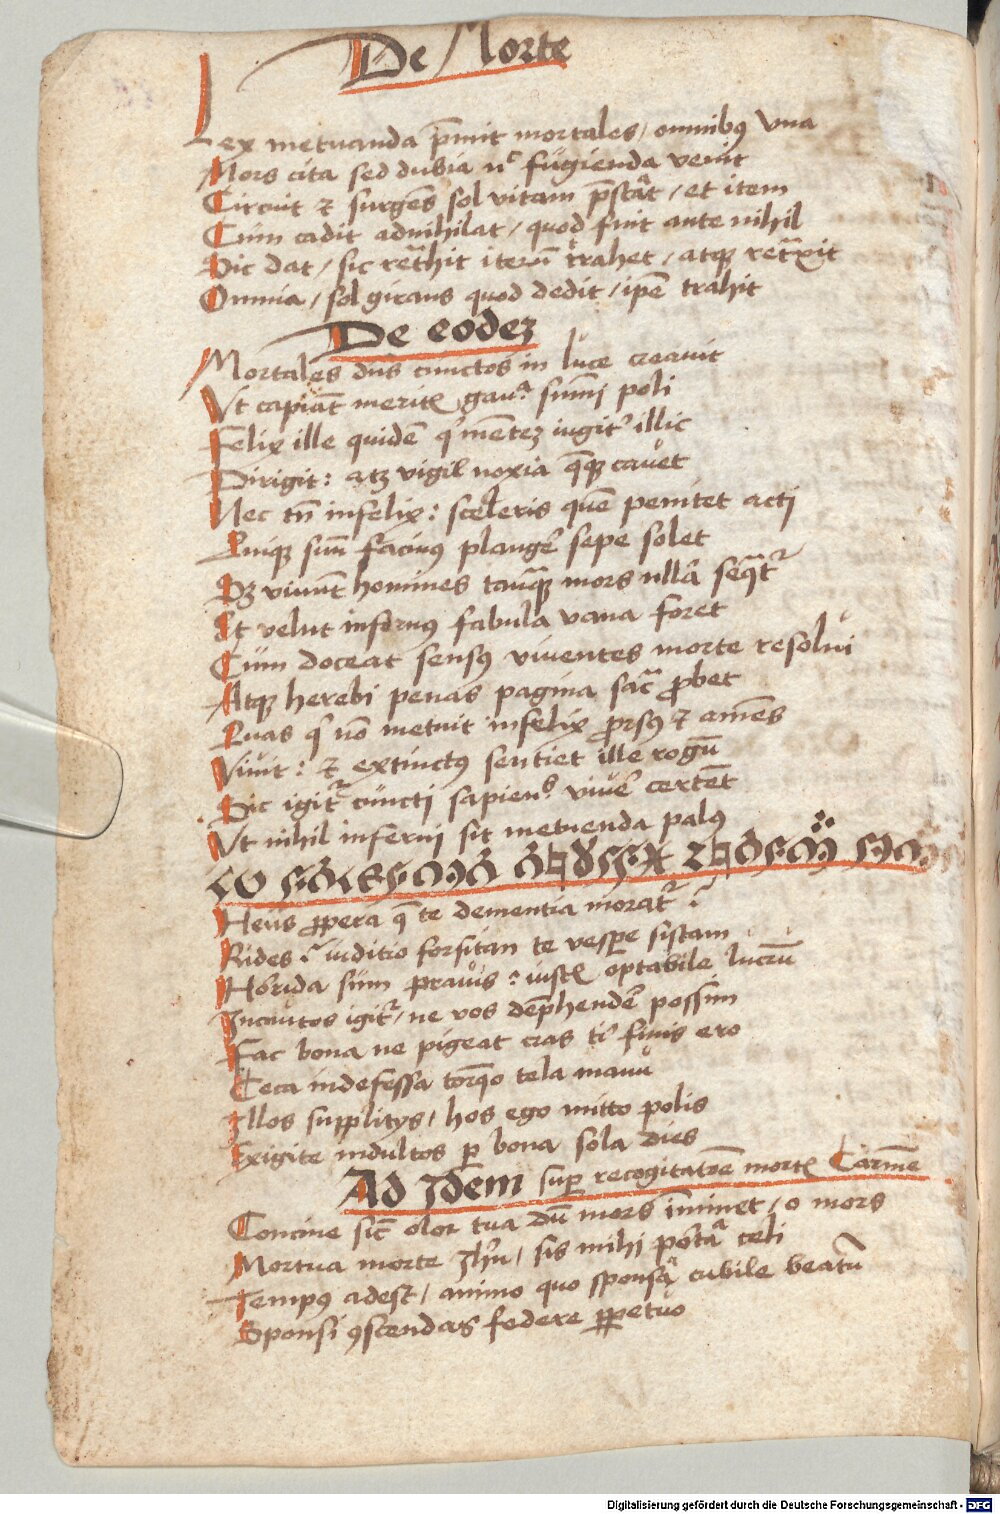 De Morte
Lex metuanda p̄mit mortales / omnibꝯ vna
Mors cita sed dubia nc̄ fugienda venit
Circuit ⁊ surgēs sol vitam p̄stāt / et item
Cum cadit adnihilat / quod fuit ante nihil
Sic dat / sic ret̄hit iterū trahet / atqꝫ
Omnia / sol girans quod dedit / ip̄e trahit
De eodeꝫ
Mortales dn̄s cunctos in luce creauit
Vt capiāt meritꝭ gauᵃ sūmi poli
Felix ille quidē qͥ mēteꝫ iugitᵉ illic
Dirigit : atꝫ vigil noxia q̄qꝫ cauet
Nec tn̄ infelix : sceleris quē penitet acti
Quiqꝫ suū facinꝯ plangeᵉ sepe solet
Sꝫ viuūt homines tanqᵃꝫ mors nllā seqᵃtᵉ
Et velut infernꝯ fabula vana foret
Cum doceat sensꝯ viuentes morte resolui
Atqꝫ herebi penas pagina sacᵃ ꝓbet
Quas qͥ nō metuit infelix ꝓrsꝯ ⁊ amēs
Viuit : ⁊ extinctꝯ sentiet ille rogū
Sic igitᵉ cuncti sapienˢ viueᵉ certēt
Vt nihil inferni sit metuenda palꝯ
Heus ꝓpera q̄ te dementia moratᵉ ?
Rides ? iuditio forsitan te vesp̄e sistam
Horida sum prauis ? iustꝭ optabile lucrū
Incautos igitᵉ / ne vos dep̄hendeᵉ possim
Fac bona ne pigeat cras tͥ finis ero
Ceca indefessa torq̄o tela manu
Illos supplitys / hos ego mitto polis
Exigite indultos ꝑ bona sola dies
Ad Idem suꝑ recogitatōe mortꝭ Carmē
Concine sic̄ olor tua dū mors īminet / o mors
Mortua morte Ihū / sis mihi portᵃ celi
Tempꝯ adest / animo quo sponsā cubile beatū
Sponsi ꝯscendas federe ꝑpetuo
Digitalisierung gefördert durch die Deutsche Forschungsgemeinschaft - DFG